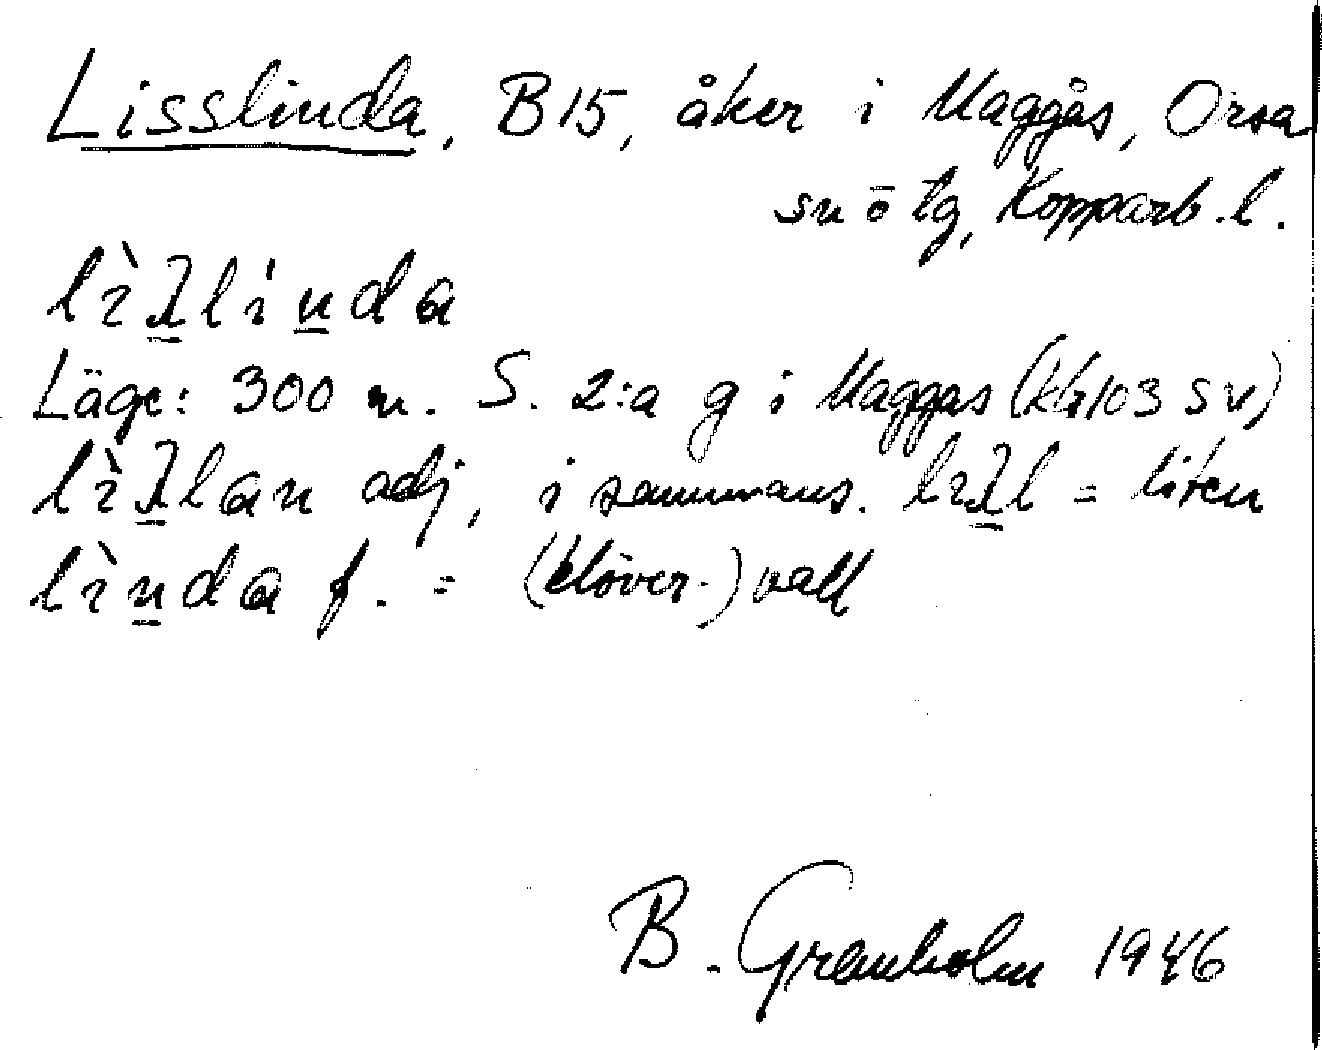 Lisslinda, B 15, åker i Maggås, Orsa
sn ö tg, Kopparb. l.
lìλ̲lin̲da
Läge: 300 m. S. 2:a g i Maggås (kbl 103 SV)
lìλ̲lan adj, i sammans. liλ̲l = liten
lìn̲da f. = (klöver-) vall
B. Granholm 1946